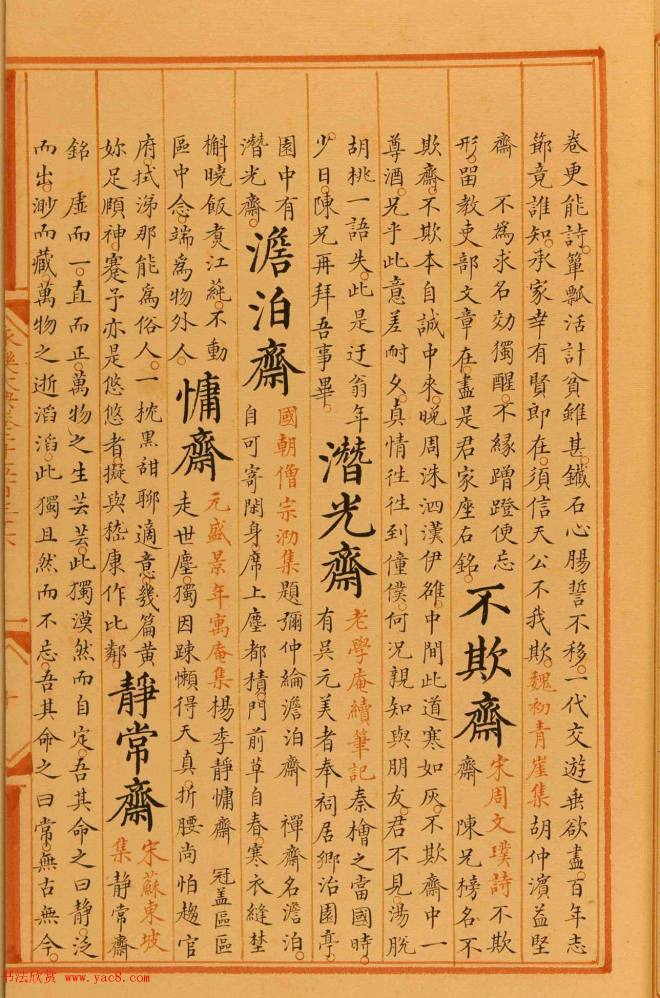 卷更能詩。簞瓢活計貧雖甚。鐵石心腸誓不移。一代交遊垂欲盡。百年志
節竟誰知。承家幸有賢即在。須信天公不我欺。魏初青崖集胡仲濱益堅
齋　不為求名効獨醒。不緣蹭蹬便忘
形。留教吏部文章在。盡是君家座右銘。
不欺齋
宋周文璞詩不欺
齋　陳兄榜名不
欺齋。不欺本自誠中來。晚周洙泗漢伊雒。中間此道寒如灰。不欺齋中一
尊酒。兄乎此意差耐久。真情徃徃到僮僕。何況親知與朋友。君不見。湯脫
胡桃一語失。此是迂翁年
少日。陳兄再拜吾事畢。
潛光齋
老學庵續筆記秦檜之當國時。
有吳元美者奉祠居鄉治園亭。
園中有
潛光齋。
澹泊齋
國朝僧宗泐集題彌仲綸澹泊齋　禪齋名澹泊。
自可寄閑身。席上塵都積。門前草自春。寒衣縫埜
槲曉飯煑江蒓。不動
區中念。端為物外人。
慵齋
元盛景年寓庵集楊李靜慵齋　冠蓋區區
走世塵。獨因踈懶得天真。折腰尚怕趨官
府。拭涕那能為俗人。一枕黑甜聊適意。幾篇黃
妳足頤神。蹇予亦是悠悠者。擬與嵇康作比鄰。
靜常齋
宋蘇東坡
集靜常齋
銘　虛而一。直而正。萬物之生芸芸。此獨漠然而自定。吾其命之曰靜。泛
而出。渺而藏。萬物之逝滔滔。此獨且然而不忘。吾其命之曰常。無古無今。
书法欣赏 www.yac8.com